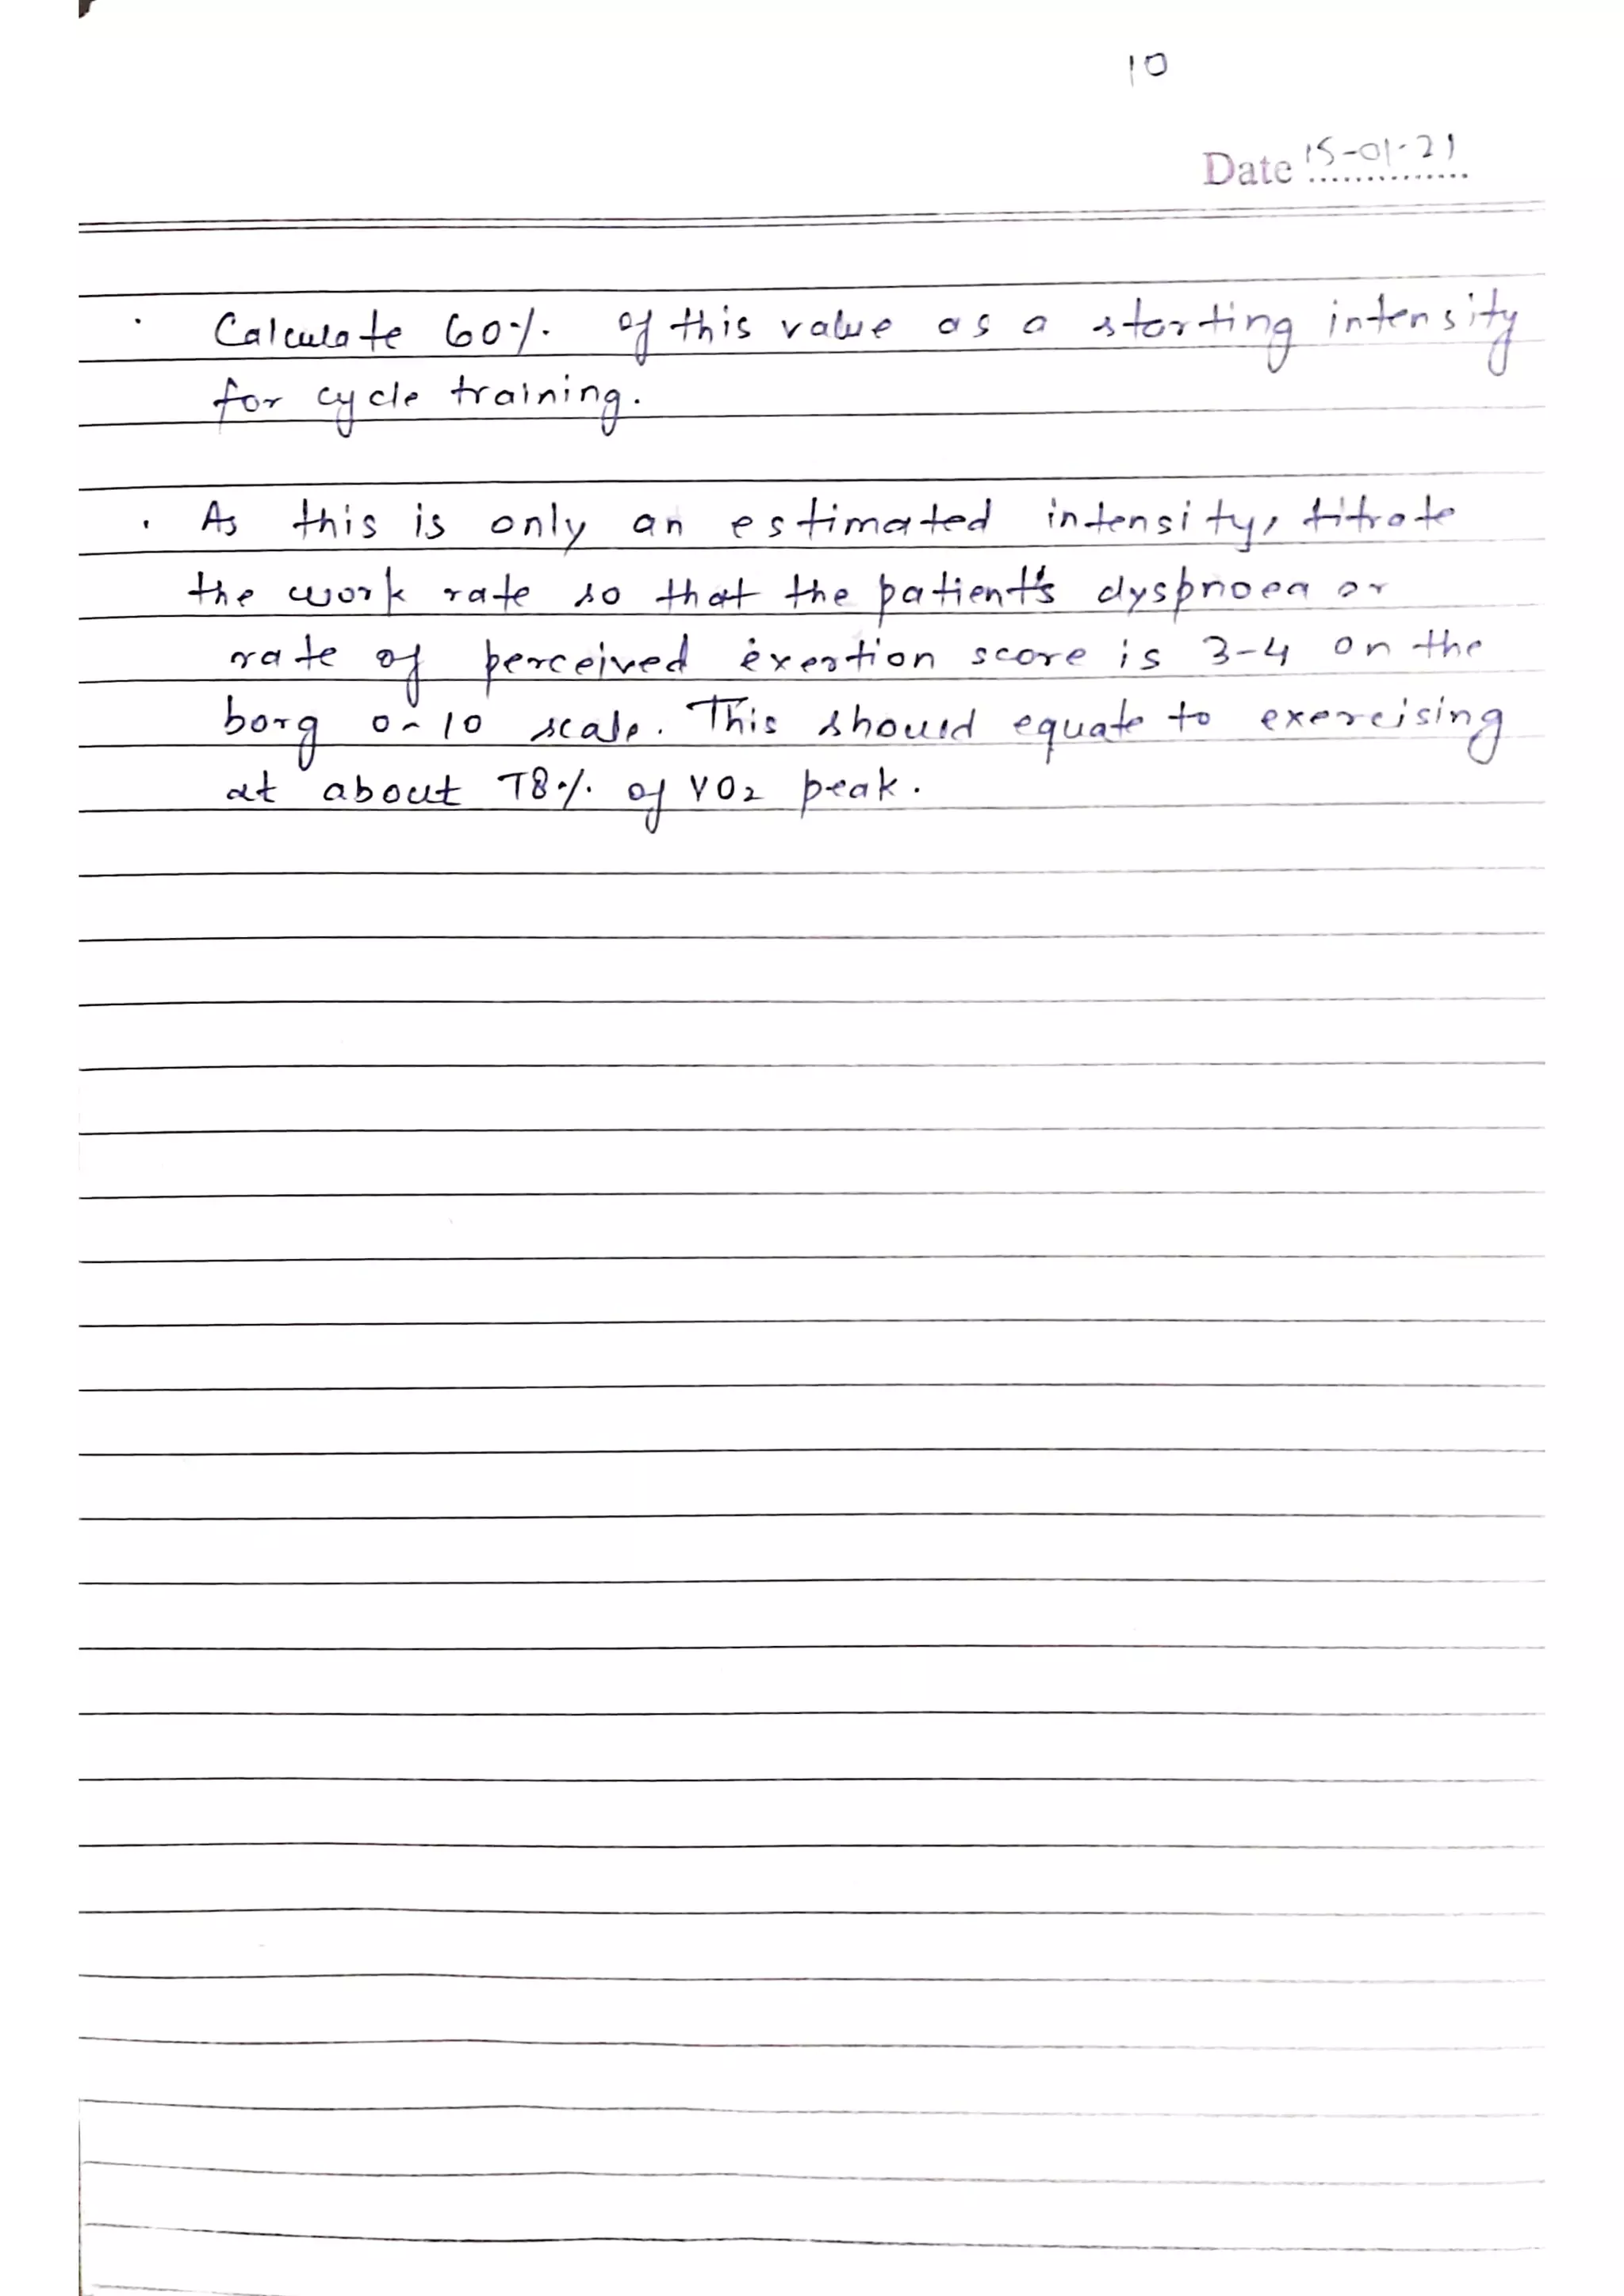 10
Date 15-01-21
· Calculate 60% of this value as a starting intensity
for cycle training.
· As this is only an estimated intensity, titrate
the work rate so that the patient's dyspnoea or
rate of perceived exertion score is 3-4 on the
borg 0-10 scale. This should equate to exercising
at about 78% of VO₂ peak.